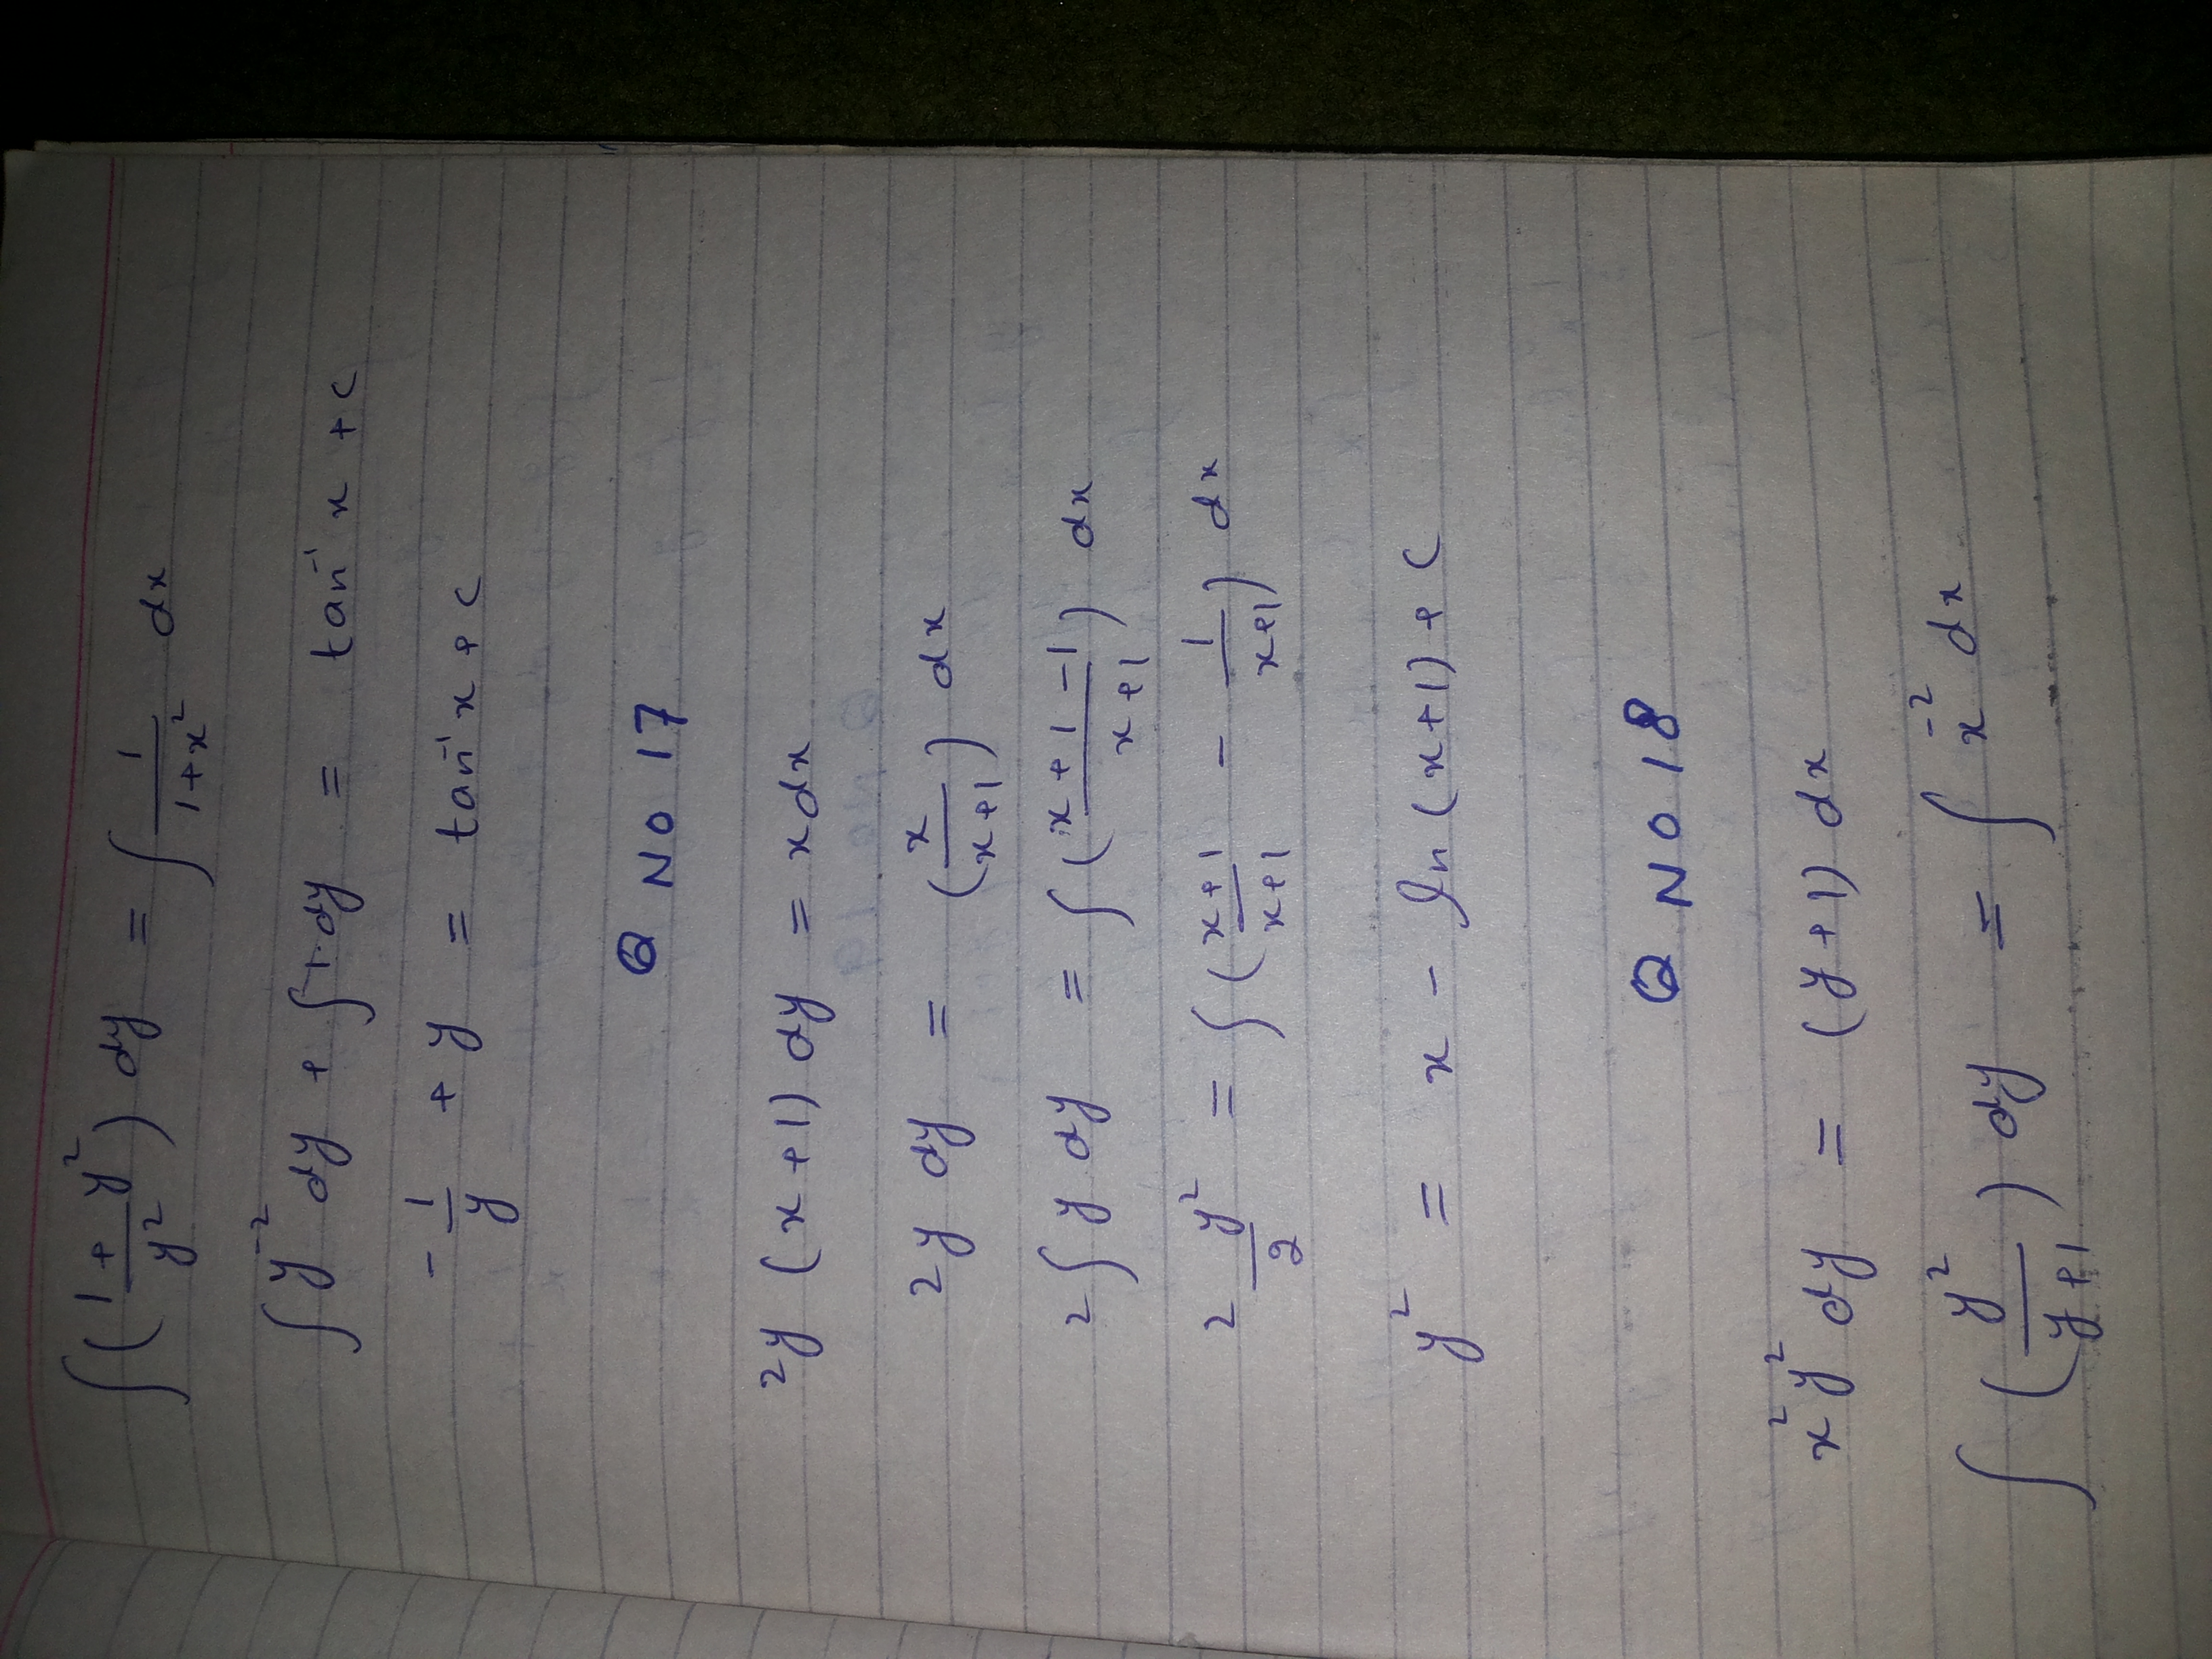 ∫(1 + y²/y²) dy = ∫ 1/1+x² dx
∫ y⁻² dy + ∫ 1·dy = tan⁻¹ x + c
-1/y + y = tan⁻¹ x + c
Q NO 17
2y (x+1) dy = x dx
2y dy = (x/x+1) dx
2∫ y dy = ∫(x+1-1/x+1) dx
2 y²/2 = ∫(x+1/x+1 - 1/x+1) dx
y² = x - ln(x+1) + C
Q NO 18
x² y² dy = (y+1) dx
∫ (y²/y+1) dy = ∫ x⁻² dx